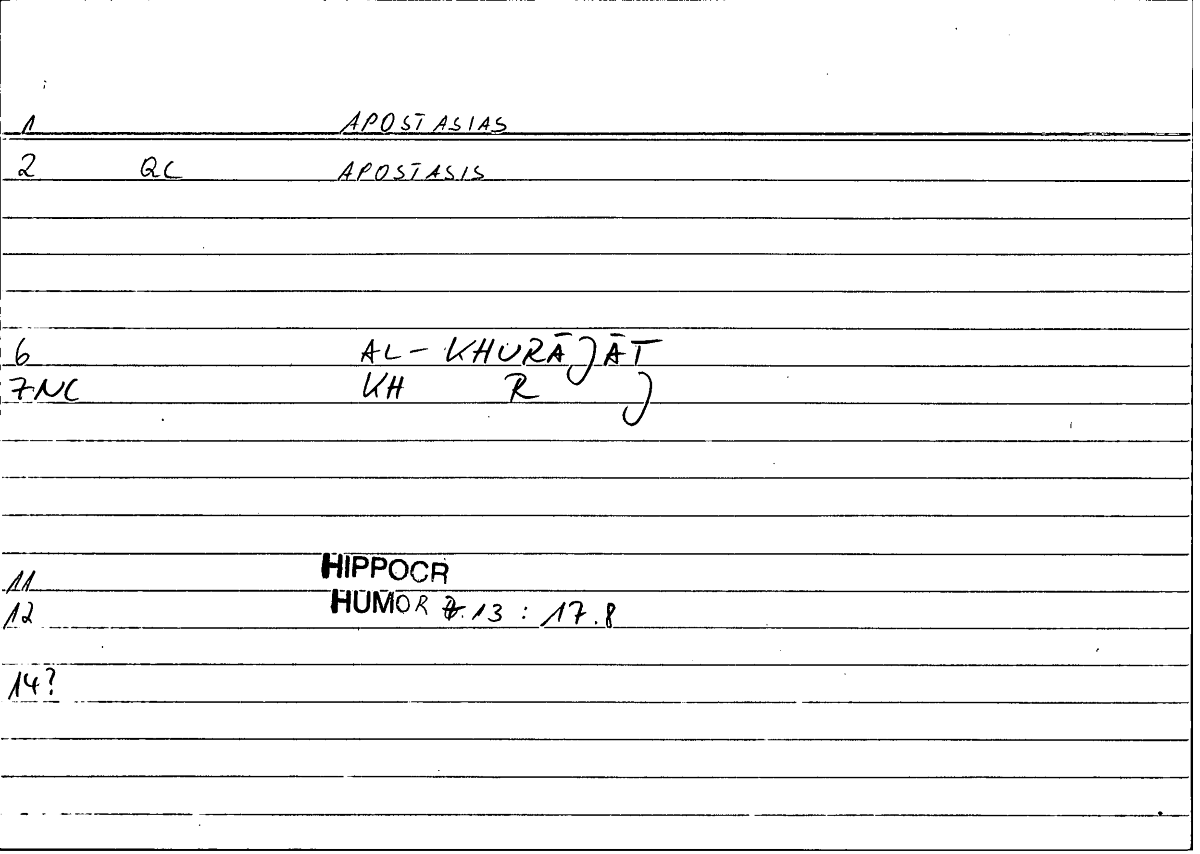 1 APOSTASIAS
2 QC APOSTASIS
6 AL-KHURĀJĀT
7NC KH R J
11 HIPPOCR
12 HUMOR .13 : 17.8
14?